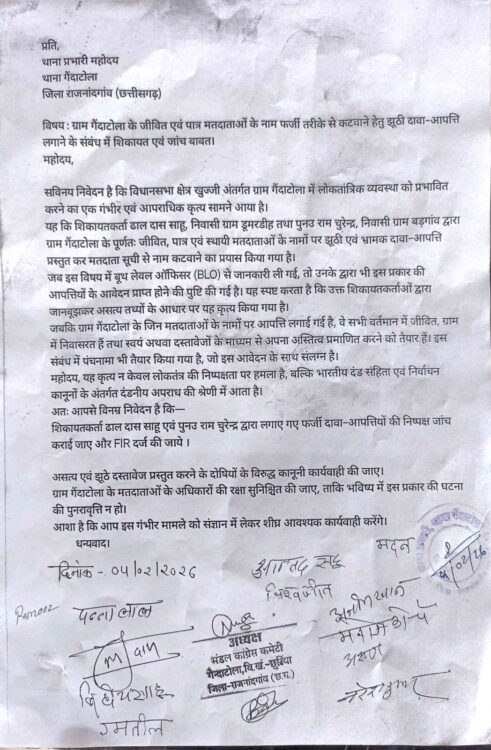 प्रति,
थाना प्रभारी महोदय
थाना गैंदाटोला
जिला राजनांदगांव (छत्तीसगढ़)
विषय : ग्राम गैंदाटोला के जीवित एवं पात्र मतदाताओं के नाम फर्जी तरीके से कटवाने हेतु झूठी दावा–आपत्ति
लगाने के संबंध में शिकायत एवं जांच बाबत।
महोदय,
सविनय निवेदन है कि विधानसभा क्षेत्र खुज्जी अंतर्गत ग्राम गैंदाटोला में लोकतांत्रिक व्यवस्था को प्रभावित
करने का एक गंभीर एवं आपराधिक कृत्य सामने आया है।
यह कि शिकायतकर्ता ढाल दास साहू, निवासी ग्राम डूमरडीह तथा पुनउ राम चुरेन्द्र, निवासी ग्राम बड़गांव द्वारा
ग्राम गैंदाटोला के पूर्णतः जीवित, पात्र एवं स्थायी मतदाताओं के नामों पर झूठी एवं भ्रामक दावा–आपत्ति
प्रस्तुत कर मतदाता सूची से नाम कटवाने का प्रयास किया गया है।
जब इस विषय में बूथ लेवल ऑफिसर (BLO) से जानकारी ली गई, तो उनके द्वारा भी इस प्रकार की
आपत्तियों के आवेदन प्राप्त होने की पुष्टि की गई है। यह स्पष्ट करता है कि उक्त शिकायतकर्ताओं द्वारा
जानबूझकर असत्य तथ्यों के आधार पर यह कृत्य किया गया है।
जबकि ग्राम गैंदाटोला के जिन मतदाताओं के नामों पर आपत्ति लगाई गई है, वे सभी वर्तमान में जीवित, ग्राम
में निवासरत हैं तथा स्वयं अथवा दस्तावेजों के माध्यम से अपना अस्तित्व प्रमाणित करने को तैयार हैं। इस
संबंध में पंचनामा भी तैयार किया गया है, जो इस आवेदन के साथ संलग्न है।
महोदय, यह कृत्य न केवल लोकतंत्र की निष्पक्षता पर हमला है, बल्कि भारतीय दंड संहिता एवं निर्वाचन
कानूनों के अंतर्गत दंडनीय अपराध की श्रेणी में आता है।
अतः आपसे विनम्र निवेदन है कि—
शिकायतकर्ता ढाल दास साहू एवं पुनउ राम चुरेन्द्र द्वारा लगाए गए फर्जी दावा–आपत्तियों की निष्पक्ष जांच
कराई जाए और FIR दर्ज की जाये ।
असत्य एवं झूठे दस्तावेज प्रस्तुत करने के दोषियों के विरुद्ध कानूनी कार्यवाही की जाए।
ग्राम गैंदाटोला के मतदाताओं के अधिकारों की रक्षा सुनिश्चित की जाए, ताकि भविष्य में इस प्रकार की घटना
की पुनरावृत्ति न हो।
आशा है कि आप इस गंभीर मामले को संज्ञान में लेकर शीघ्र आवश्यक कार्यवाही करेंगे।
धन्यवाद।
मदन
दिनांक - 04/02/2026
पन्नालाल
अध्यक्ष
मंडल कांग्रेस कमेटी
गैन्दाटोला, वि.खं.-छुरिया
जिला-राजनांदगांव (छ.ग.)